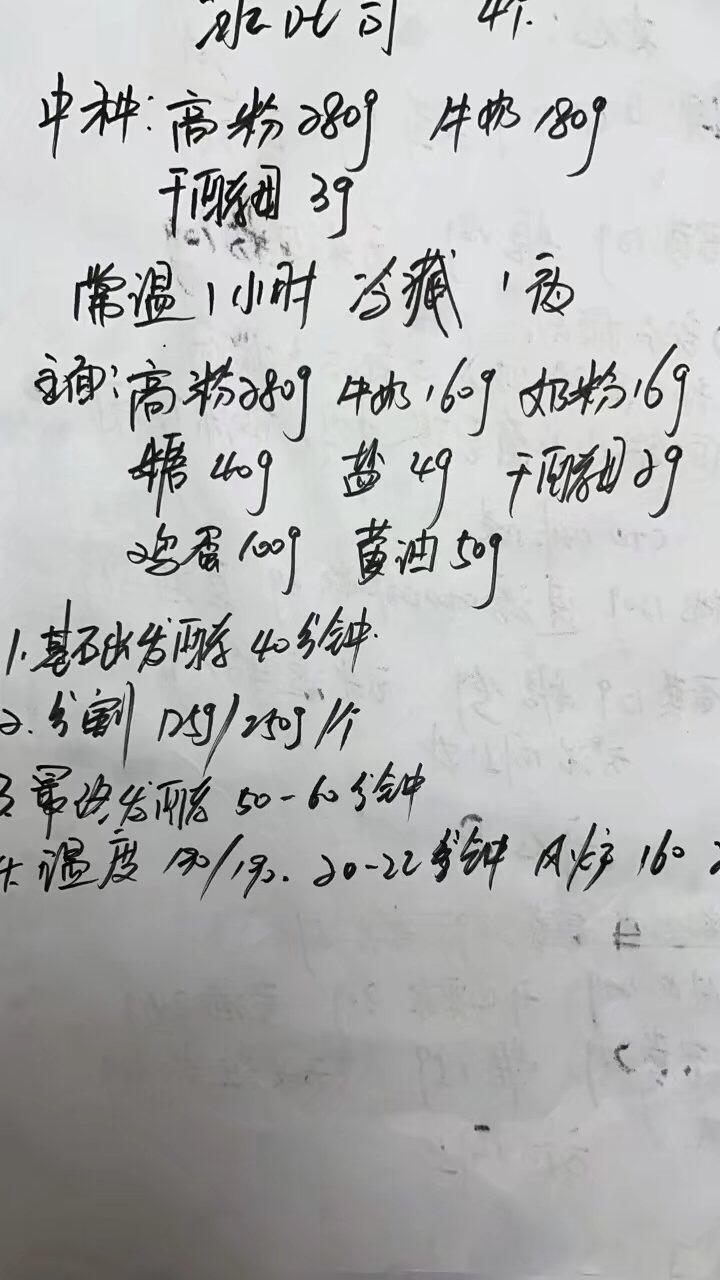 中种:高粉280g 牛奶180g
干酵母 3g
常温1小时 冷藏 1夜
主面:高粉280g 牛奶160g 奶粉16g
糖40g 盐4g 干酵母2g
鸡蛋100g 黄油50g
1.基石出发酵 40分钟.
2.分割 125g/250g/个
3.最终发酵 50-60分钟
温度 /190. 20-22分钟 风炉 160